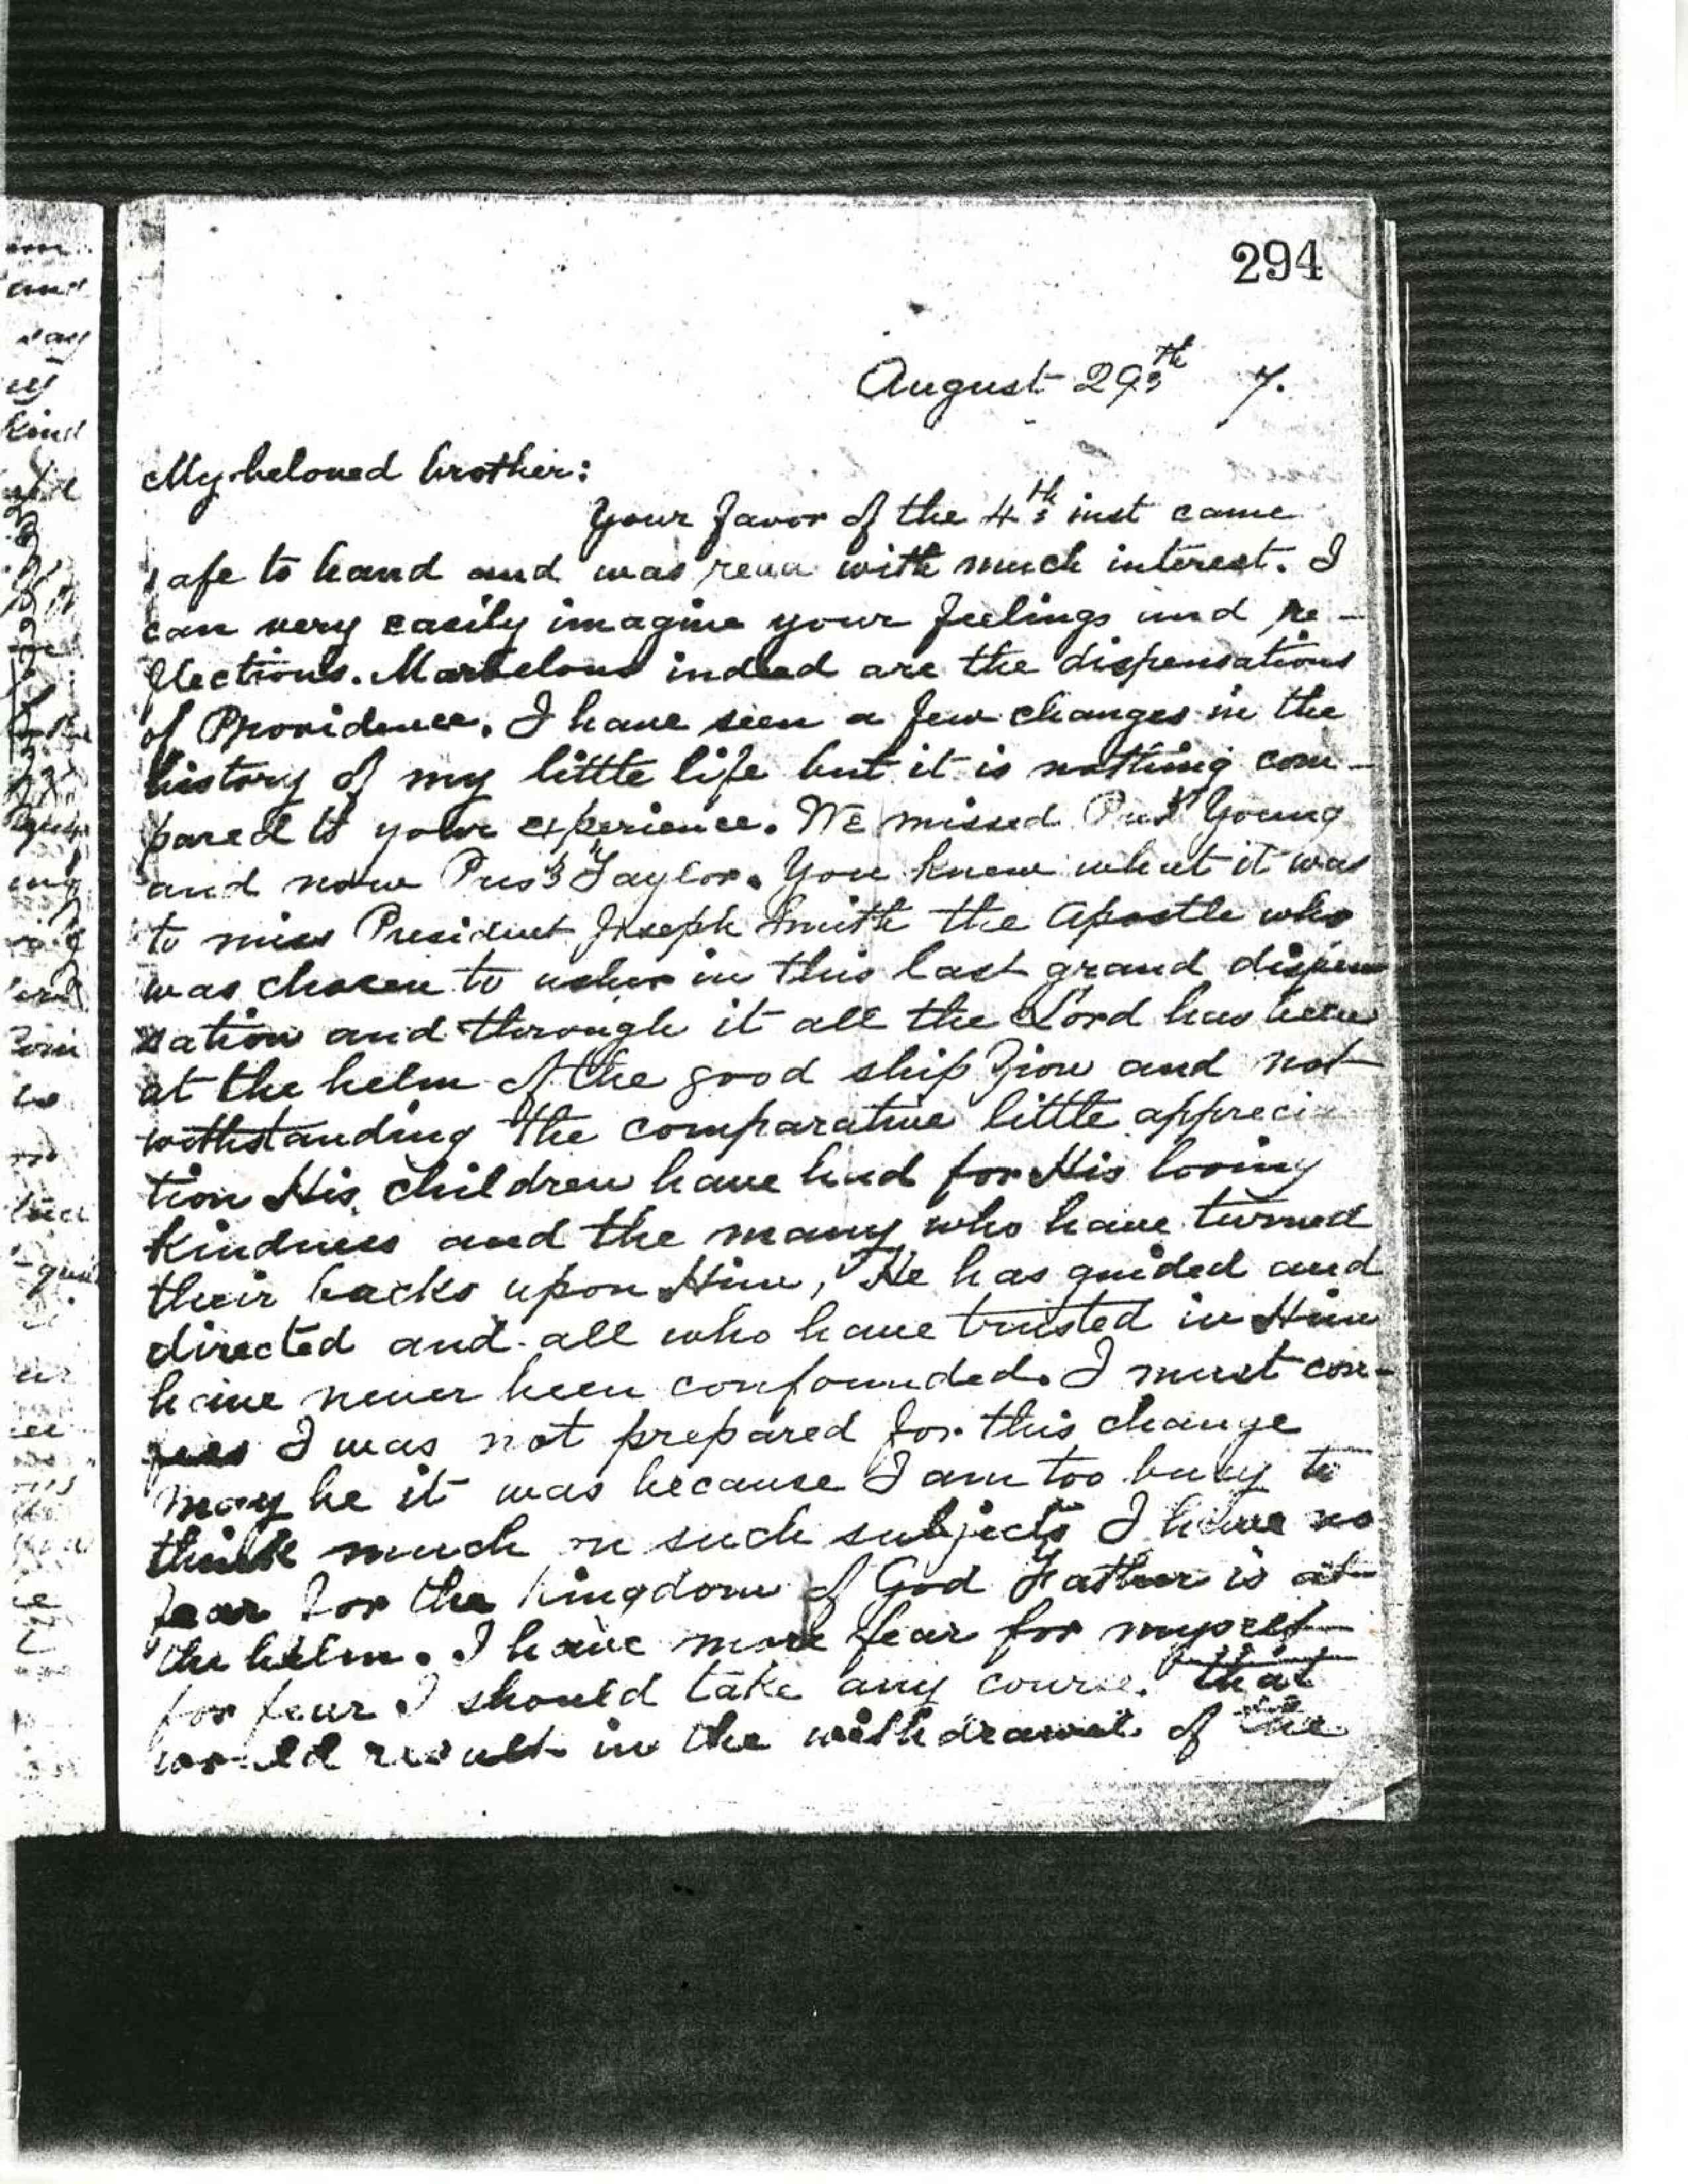 294
August 29th 7.
My beloved brother:
Your favor of the 4th inst came
safe to hand and was read with much interest. I
can very easily imagine your feelings and re-
flections. Marvelous indeed are the dispensations
of Providence. I have seen a few changes in the
history of my little life but it is nothing com-
pared to your experience. We missed Prest Young
and now Prest Taylor. You knew what it was
to miss President Joseph Smith the Apostle who
was chosen to usher in this last grand dispen
sation and through it all the Lord has been
at the helm of the good ship Zion and not
withstanding the comparative little apprecia
tion His children have had for His loving
kindness and the many who have turned
their backs upon Him, He has guided and
directed and all who have trusted in Him
have never been confounded. I must con-
fess I was not prepared for this change
may be it was because I am too busy to
think much on such subjects I have no
fear for the kingdom of God Father is at
the helm. I have more fear for myself
for fear I should take any course that
would result in the withdrawal of the